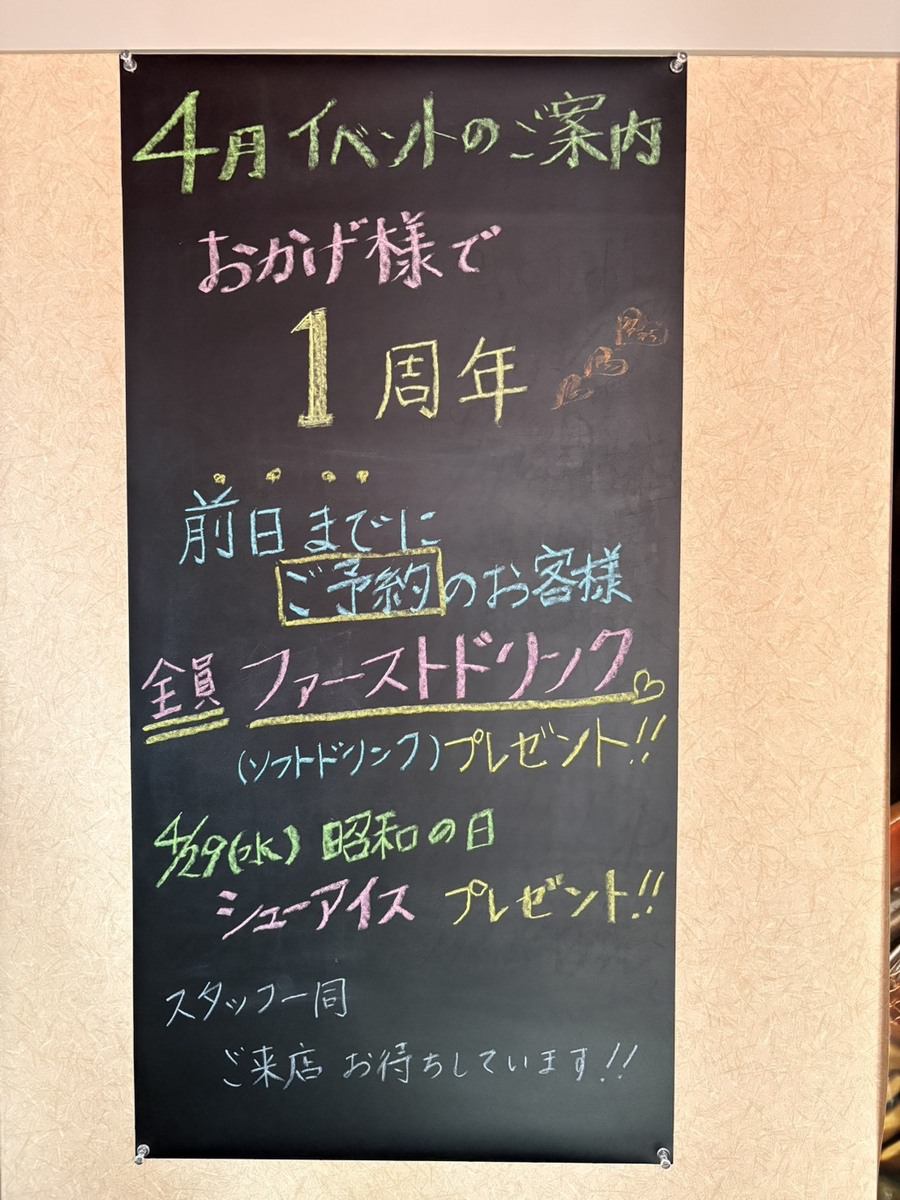 4月イベントのご案内
おかげ様で
1周年
前日までに
ご予約のお客様
全員 ファーストドリンク
(ソフトドリンク)プレゼント!!
4/29(水) 昭和の日
シューアイス プレゼント!!
スタッフ一同
ご来店 お待ちしています!!